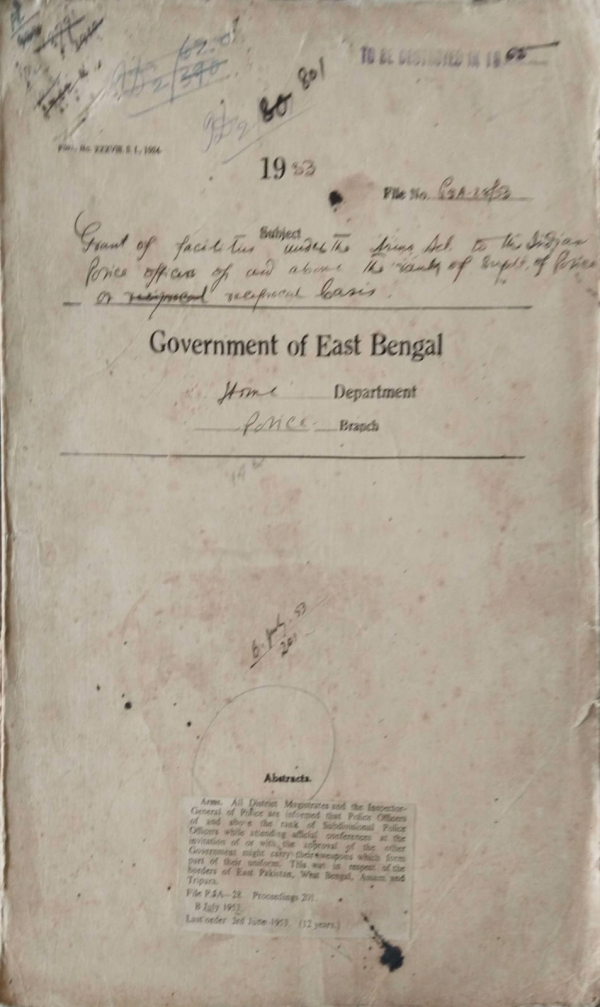 62.0
P2/390
P2 80 801
TO BE DESTROYED IN 1965
1953
File No. P5A-28/53
Subject
Grant of facilities under the Arms Act to the Indian
Police officers of and above the rank of Supdt. of Police
on reciprocal reciprocal basis.
Government of East Bengal
Home Department
Police Branch
B. July. 53
201
Abstracts.
Arms. All District Magistrates and the Inspector-
General of Police are informed that Police Officers
of and above the rank of Subdivisional Police
Officers while attending official conferences at the
invitation of or with the approval of the other
Government might carry their weapons which form
part of their uniform. This was in respect of the
borders of East Pakistan, West Bengal, Assam and
Tripura.
File P5A—28. Proceedings 201.
B July 1953.
Last order 3rd June 1953. (12 years.)